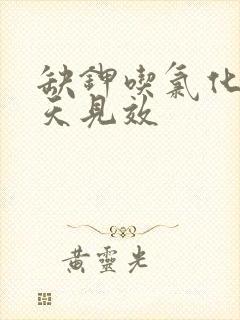 缺鉀喫氯化
天見效
黃靈光